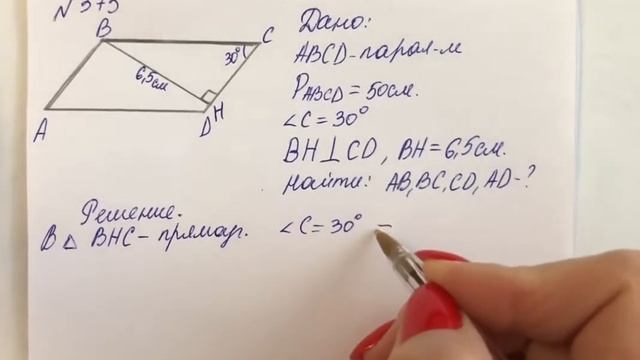 N 375
B
C
30°
6,5см
A
D
H
Дано:
ABCD-парал-м
P ABCD = 50см.
∠C = 30°
BH⊥CD, BH = 6,5см.
Найти: AB, BC, CD, AD-?
Решение.
В △ BHC - прямоуг. ∠C = 30° –